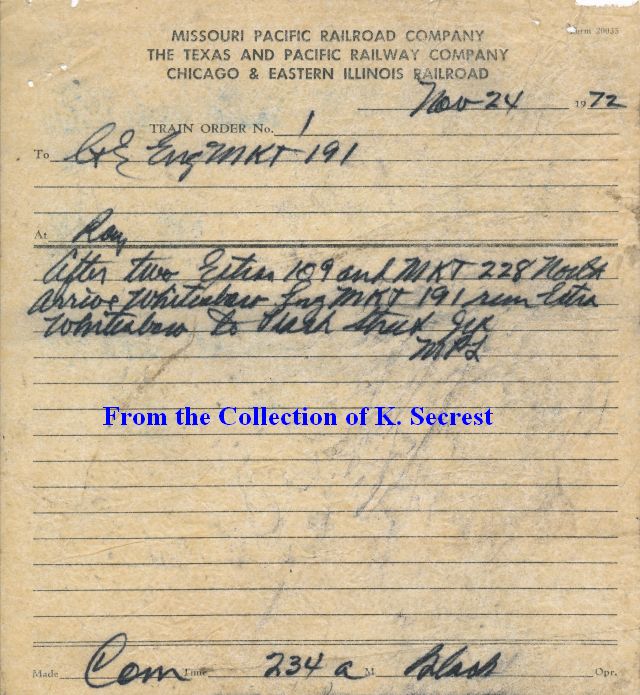 Form 20035
MISSOURI PACIFIC RAILROAD COMPANY
THE TEXAS AND PACIFIC RAILWAY COMPANY
CHICAGO & EASTERN ILLINOIS RAILROAD
Nov 24 1972
TRAIN ORDER No. 1
To C&E Eng MKT 191
At Ray
After two Extras 109 and MKT 228 North
arrive Whitesboro Eng MKT 191 run Extra
Whitesboro to Jct
From the Collection of K. Secrest
Made Com Time 234 a M Black Opr.